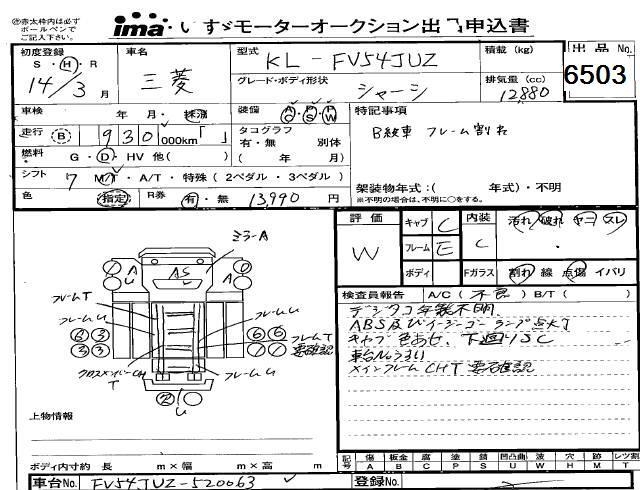 ※赤太枠内は必ず
ボールペンで
ご記入下さい。
ima いすゞモーターオークション出品申込書
初度登録
S・H・R
14/3月
車名
三菱
型式
KL-FV54JUZ
グレード・ボディ形状
シャーシ
積載(kg)
排気量(cc)
12880
出品No.
6503
車検 年 月・抹消
走行 (B) 930,000km「 」
燃料 G・D・HV 他( )
シフト 7 M/T・A/T・特殊(2ペダル・3ペダル)
色 指定 R券 有・無 13,990円
装備
タコグラフ
有・無 別体
( 年 月)
特記事項
B級車 フレーム割れ
架装物年式:( 年式)・不明
※不明の場合は、不明に○をする。
評価
W
キャブ C
フレーム E
ボディ
内装 C
汚れ 破れ ヤニ スレ
Fガラス
割れ 線 点傷 イバリ
検査員報告 A/C(不良)B/T( )
デジタコ年製不明.
ABS及びイージーゴーランプ点灯
キャブ色あせ、下廻りSC
車台No.うすい
メインフレームCHT 要確認
ミラーA
AS
A
U
フレームT
フレームU
フレームU
フレームT
要確認
クロスメンバーCH
T
フレームU
上物情報
ボディ内寸約 長 m×幅 m×高 m
記号
傷 A
板金 B
腐 C
塗 P
錆 S
凹凸曲 U
波 W
穴 H
跡 M
レツ割 T
車台No. FV54JUZ-520063
登録No.